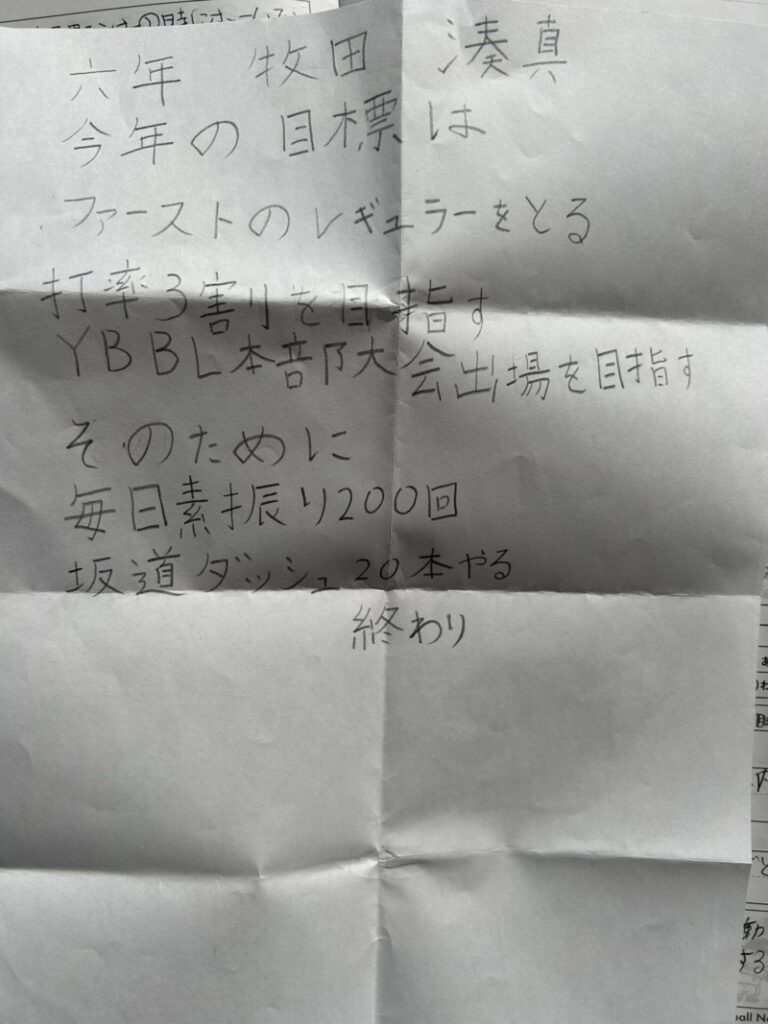 六年 牧田 湊真
今年の目標は
ファーストのレギュラーをとる
打率3割りを目指す
YBBL本部大会出場を目指す
そのために
毎日素振り200回
坂道ダッシュ20本やる
終わり
動
する
ball N